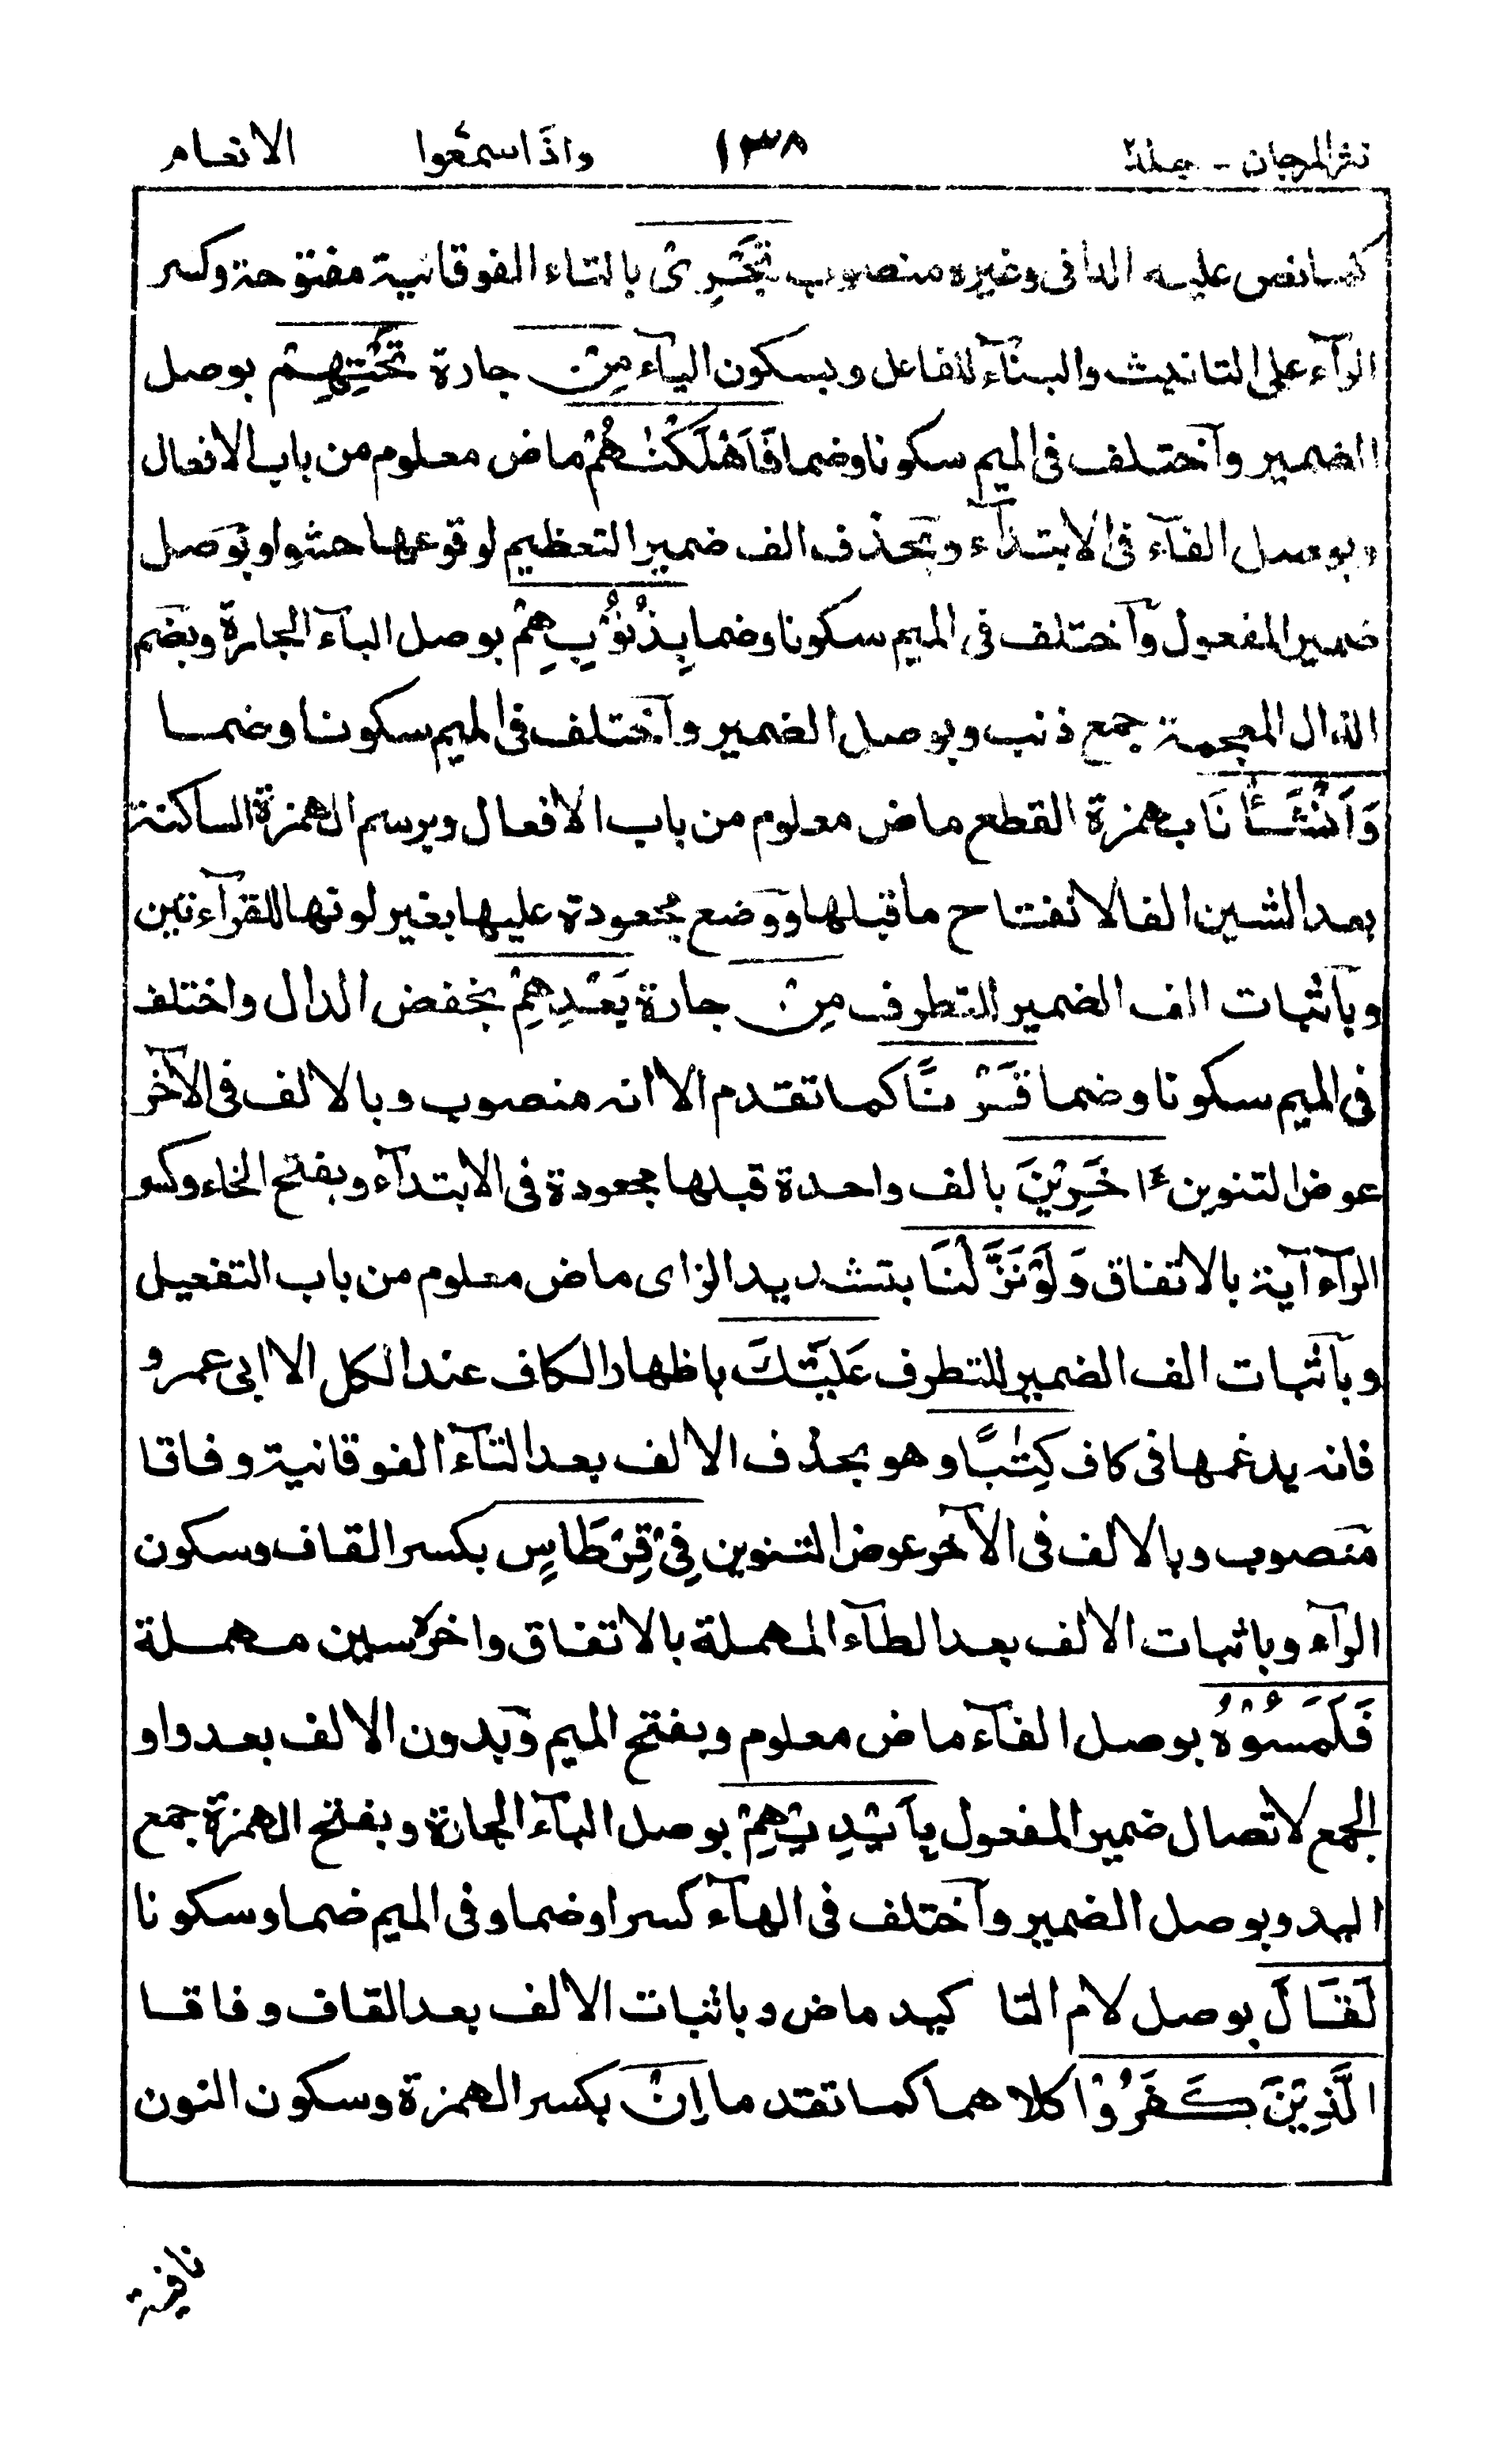 نثر المرجان - جلد٢ ١٣٨ واذا سمعوا الانعام
كما نص عليه الدانى وغيره منصوب تَجْرِىْ بالتاء الفوقانية مفتوحة وكسر
الرآء على التانيث والبنآء للفاعل وبسكون اليآء مِنْ جارة تَحْتِهِمْ بوصل
الضمير وآختلف فى الميم سكونا وضما فَاَهْلَكْنٰهُمْ ماض معلوم من باب الافعال
وبوصل الفآء فى الابتدآء وبحذف الف ضمير التعظيم لوقوعها حشوا وبوصل
ضمير المفعول وآختلف فى الميم سكونا وضما بِذُنُوْبِهِمْ بوصل البآء الجارة وبضم
الذال المعجمة جمع ذنب وبوصل الضمير وآختلف فى الميم سكونا وضما
وَاَنْشَأْنَا بهمزة القطع ماض معلوم من باب الافعال وبرسم الهمزة الساكنة
بعد الشين الفا لانفتاح ما قبلها ووضع مجعودة عليها بغير لونها للقرآءتين
وبآثبات الف الضمير للتطرف مِنْ جارة بَعْدِهِمْ بخفض الدال واختلف
فى الميم سكونا وضما قَرْنًا كما تقدم الا انه منصوب وبالالف فى الآخر
عوض التنوين ءاخَرِيْنَ بالف واحدة قبلها مجعودة فى الابتدآء وبفتح الخاء وكسر
الرآء آية بالاتفاق وَلَوْ نَزَّلْنَا بتشديد الزاى ماض معلوم من باب التفعيل
وبآثبات الف الضمير للتطرف عَلَيْكَ باظهار الكاف عند الكل الا ابى عمرو
فانه يدغمها فى كاف كِتٰبًا وهو بحذف الالف بعد التآء الفوقانية وفاقا
منصوب وبالالف فى الآخر عوض التنوين فِىْ قِرْطَاسٍ بكسر القاف وسكون
الرآء وباثبات الالف بعد الطآء المهملة بالاتفاق واخره سين مهملة
فَلَمَسُوْهُ بوصل الفآء ماض معلوم وبفتح الميم وبدون الالف بعد واو
الجمع لاتصال ضمير المفعول بِاَيْدِيْهِمْ بوصل البآء الجارة وبفتح الهمزة جمع
اليد وبوصل الضمير وآختلف فى الهآء كسرا وضما وفى الميم ضما وسكونا
لَقَالَ بوصل لام التاكيد ماض وباثبات الالف بعد القاف وفاقا
الَّذِيْنَ كَفَرُوْا كلاهما كما تقدما اِنْ بكسر الهمزة وسكون النون
نافية